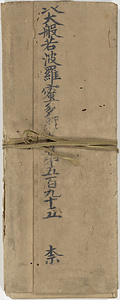 大般若波羅蜜多經卷第五百九十五